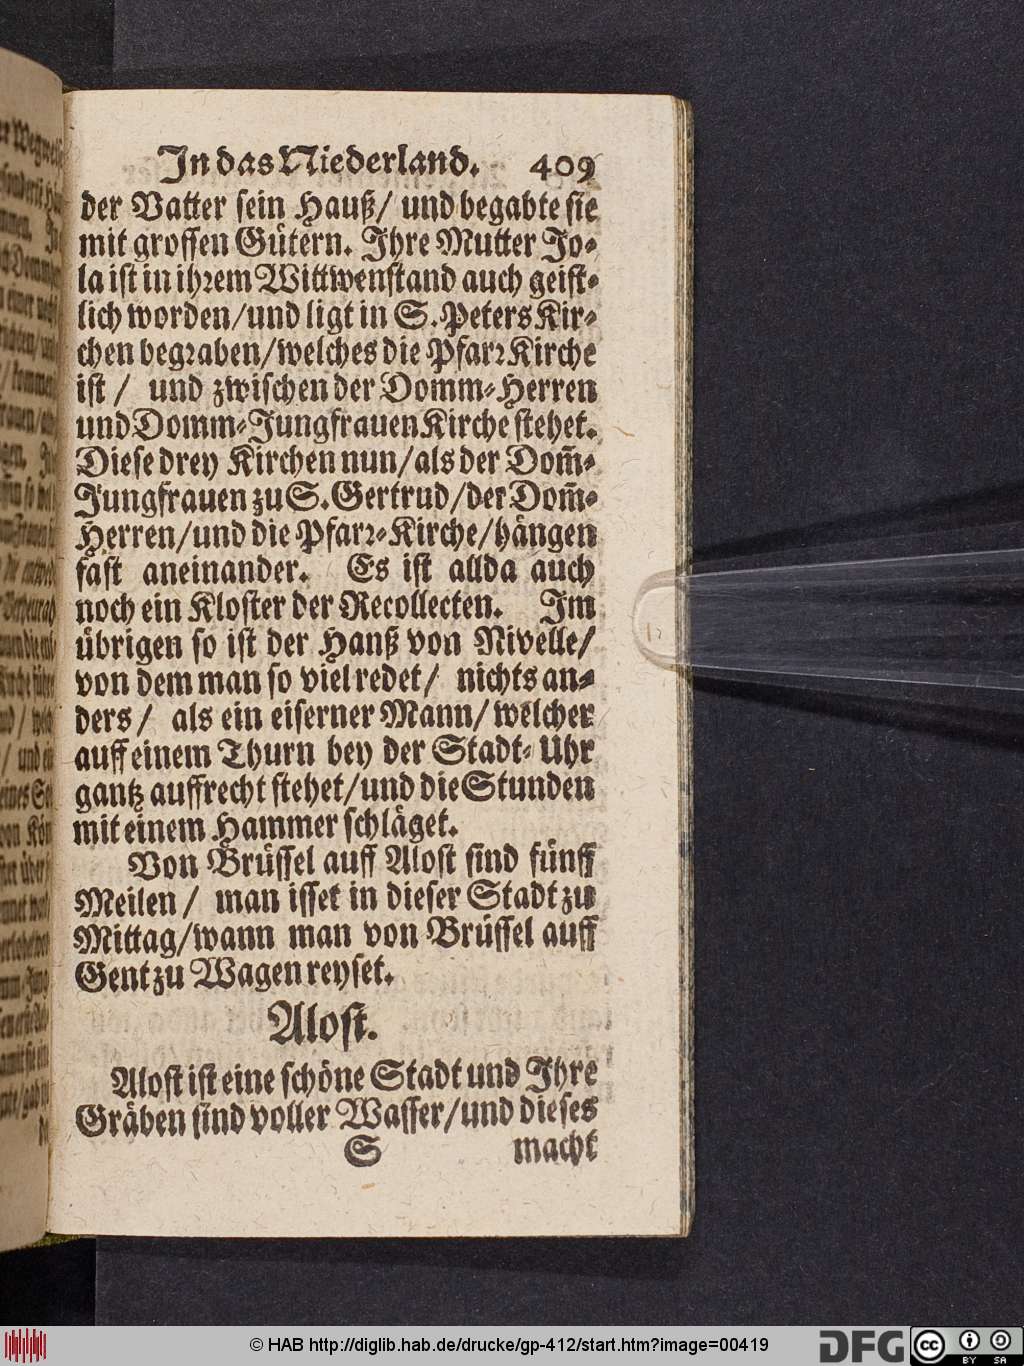 In das Niederland. 409
der Vatter sein Hauß/ und begabte sie
mit grossen Gütern. Ihre Mutter Jo-
la ist in ihrem Wittwenstand auch geist-
lich worden/und ligt in S. Peters Kir-
chen begraben/welches die Pfarr Kirche
ist / und zwischen der Domm-Herren
und Domm-Jungfrauen Kirche stehet.
Diese drey Kirchen nun/als der Dom̃-
Jungfrauen zu S. Gertrud/der Dom̃-
Herren/und die Pfarr-Kirche/hängen
fast aneinander. Es ist allda auch
noch ein Kloster der Recollecten. Im
übrigen so ist der Hanß von Nivelle/
von dem man so viel redet/ nichts an-
ders / als ein eiserner Mann/ welcher
auff einem Thurn bey der Stadt-Uhr
gantz auffrecht stehet/und die Stunden
mit einem Hammer schläget.
Von Brüssel auff Alost sind fünff
Meilen / man isset in dieser Stadt zu
Mittag/wann man von Brüssel auff
Gent zu Wagen reyset.
Alost.
Alost ist eine schöne Stadt und Ihre
Gräben sind voller Wasser/und dieses
S macht
© HAB http://diglib.hab.de/drucke/gp-412/start.htm?image=00419
DFG
cc BY SA